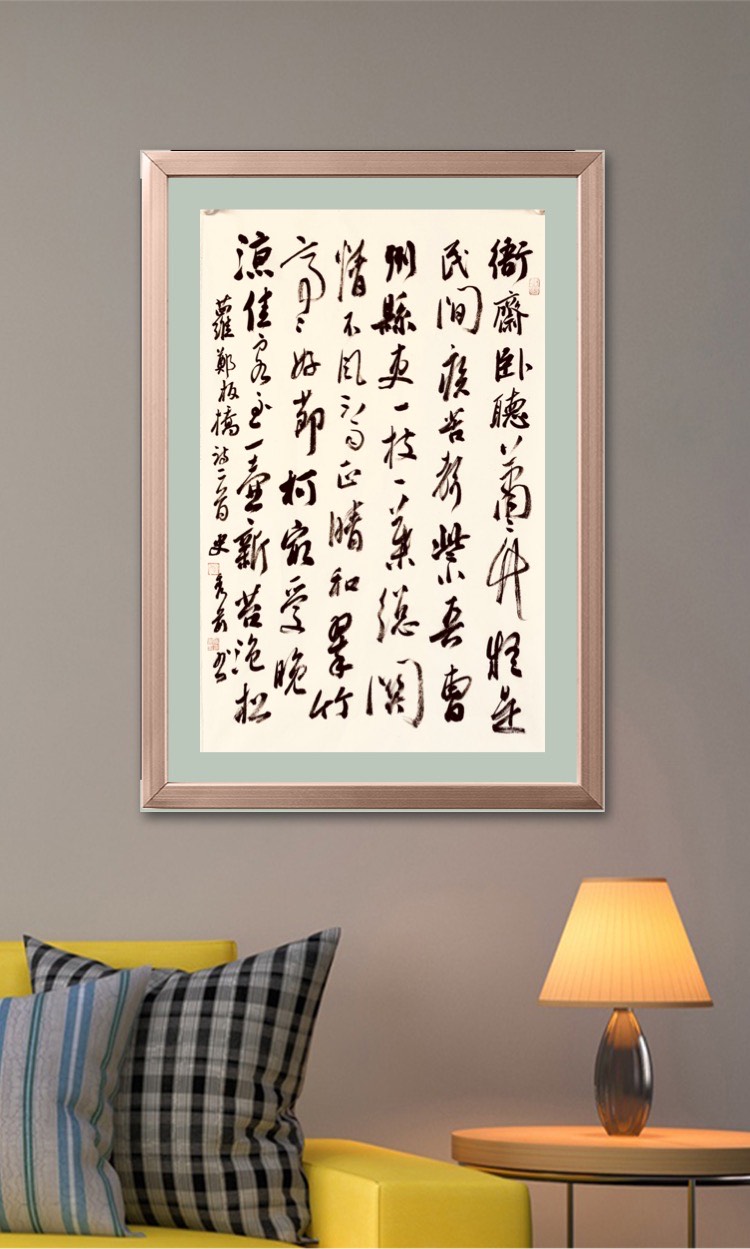 衙齋卧聽蕭々竹疑是
民間疾苦聲些小吾曹
州縣吏一枝一葉總關
情不風不雨正晴和翠竹
亭々好節柯最愛晚
涼佳客至一壺新茗泡松
蘿鄭板橋詩二首史秀书